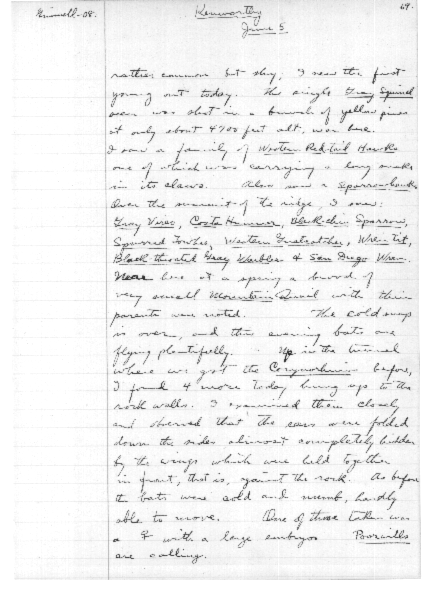 Grinnell-08.
Kenworthy
69.
June 5
rather common but shy; I saw the first
young out today. The single Gray Squirrel
seen was shot in a bunch of yellow pines
at only about 4700 feet alt., near here.
I saw a family of Western Red-tail Hawks
one of which was carrying a long snake
in its claws. Also saw a sparrow-hawk.
Over the summit of the ridge, I saw:
Gray Vireo, Costa Hummer, Black-chin Sparrow,
Spurred Towhee, Western Gnatcatcher, Wren-tit,
Black-throated Gray Warbler & San Diego Wren.
Near here at a spring a brood of
very small Mountain Quail with their
parents were noted. The cold snap
is over, and this evening bats are
flying plentifully. Up in the tunnel
where we got the Corynorhinus before,
I found 4 more today hung up to the
rock walls. I examined them closely
and observed that the ears were folded
down the sides almost completely hidden
by the wings which were held together
in front, that is, against the rock. As before
the bats were cold and numb, hardly
able to move. One of those taken was
a ♀ with a large embryo. Poorwills
are calling.